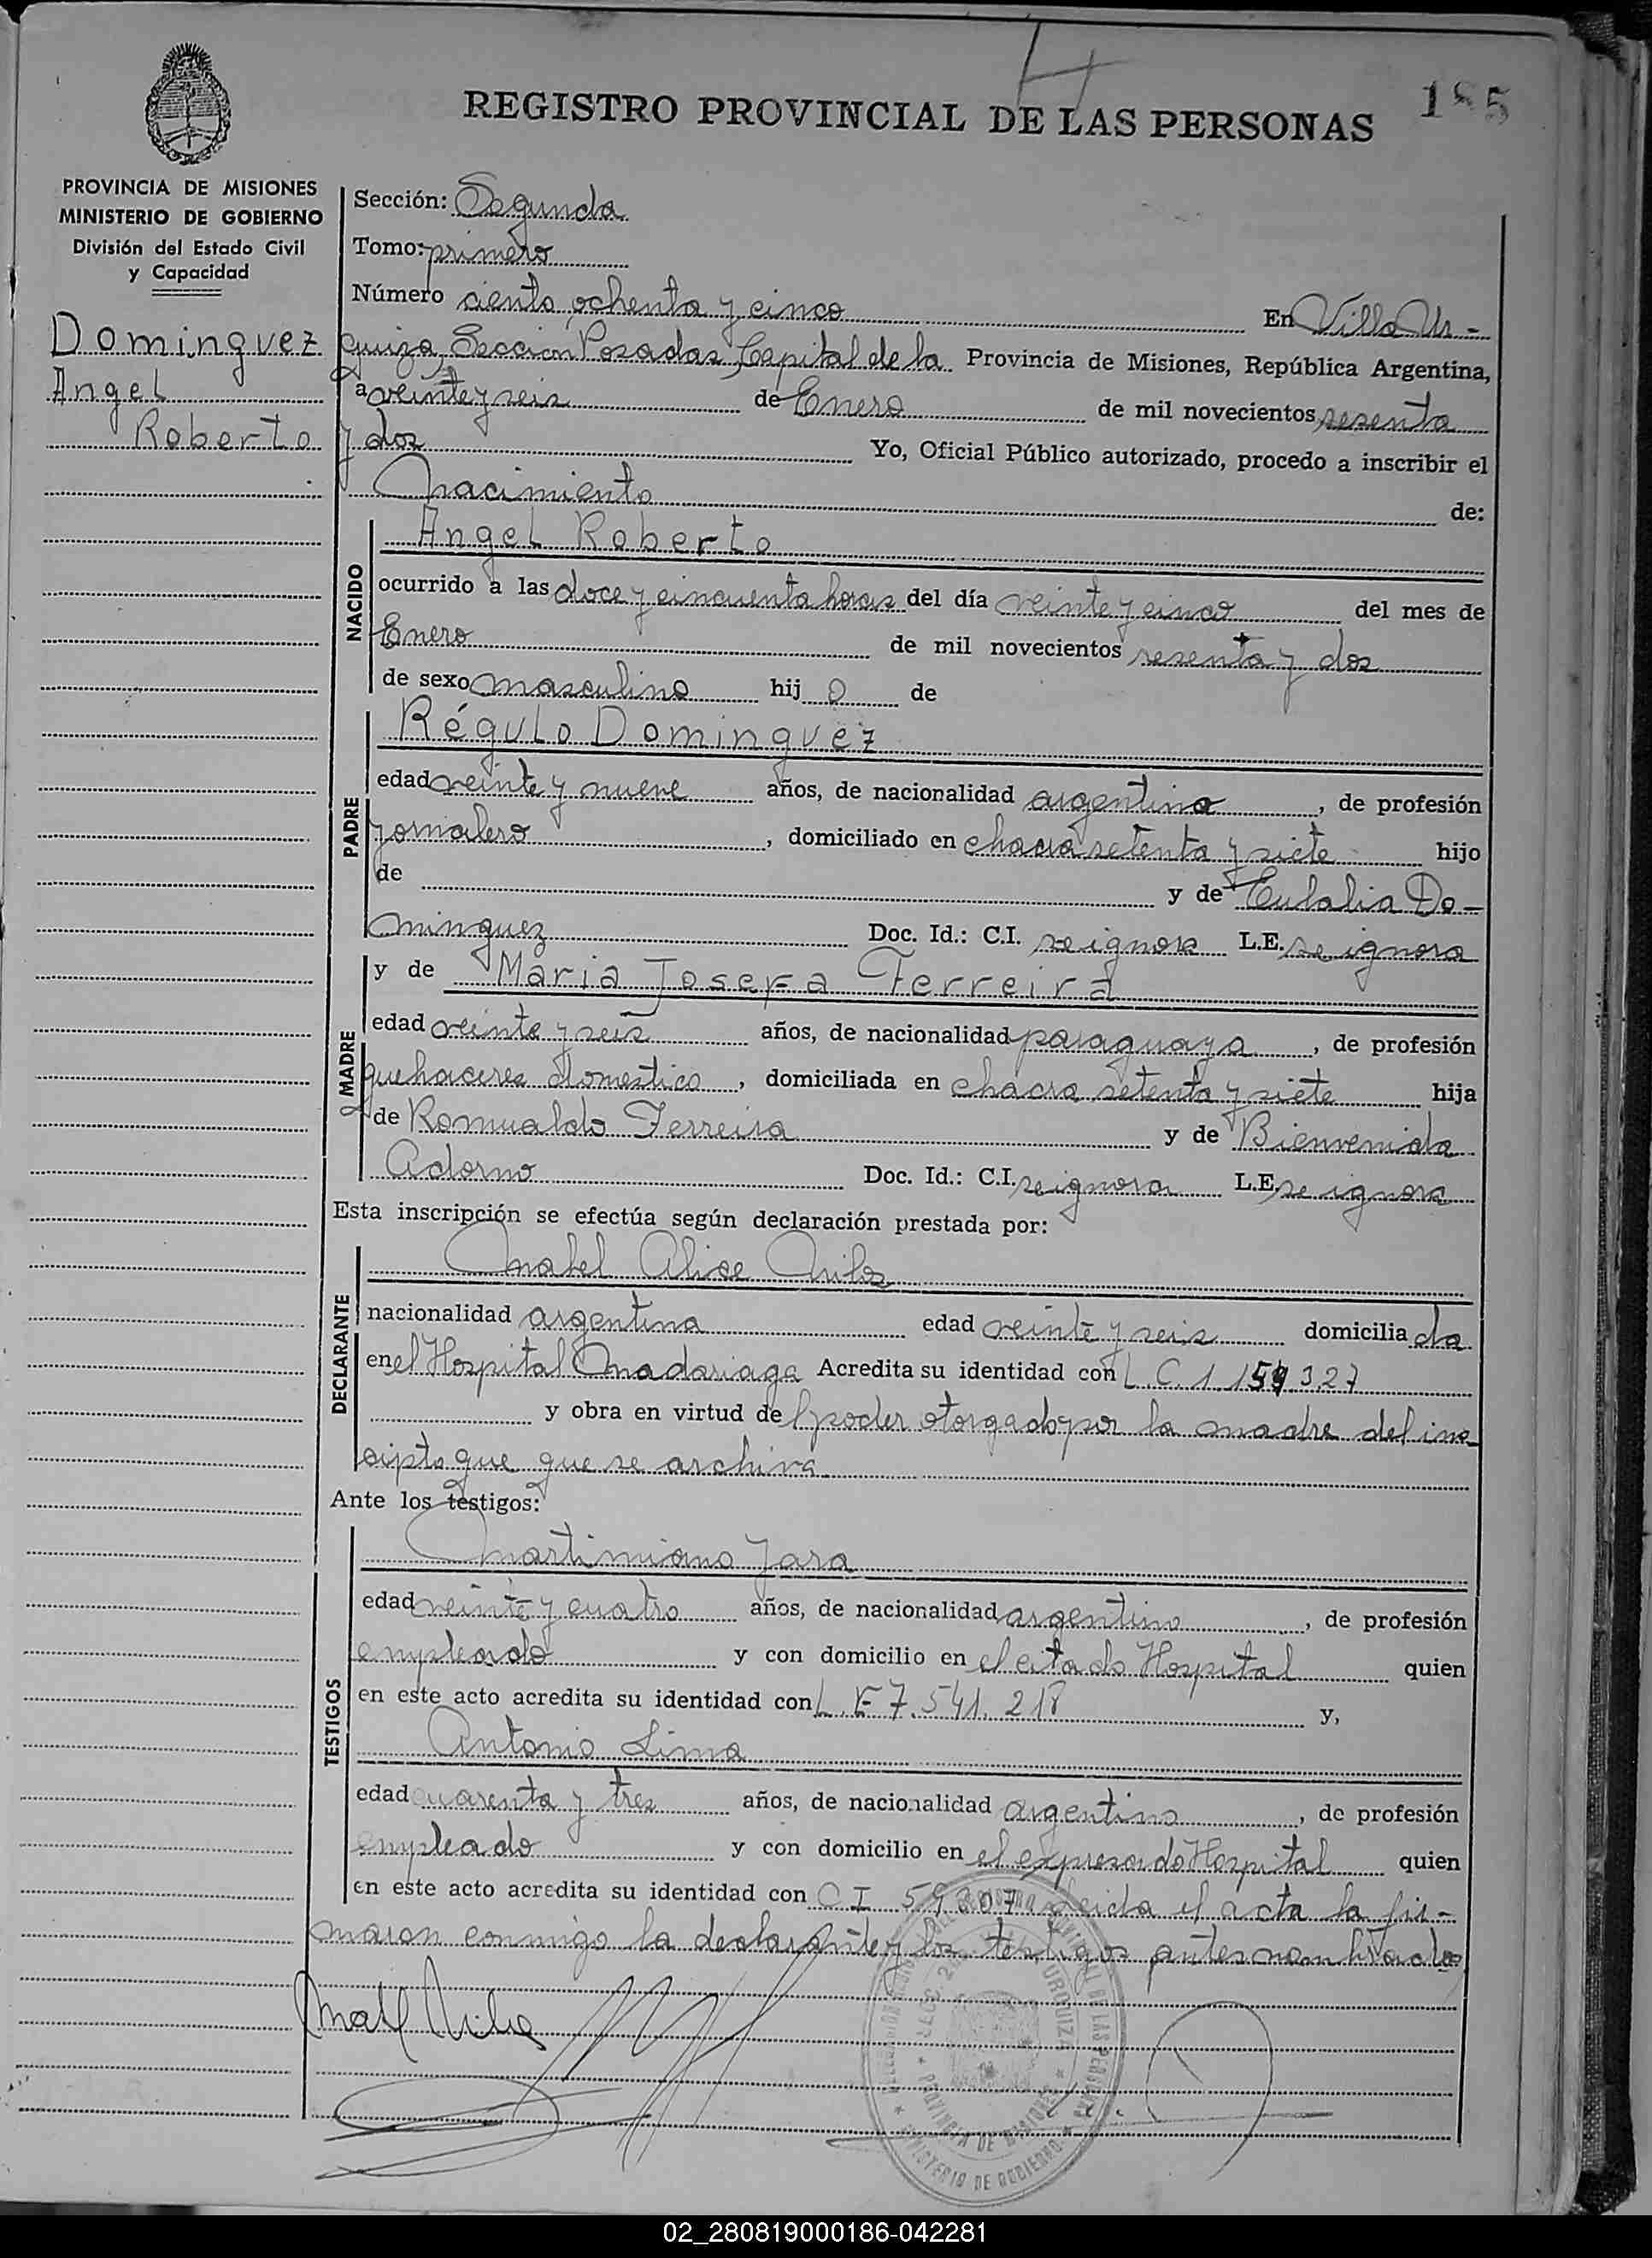 185
REGISTRO PROVINCIAL DE LAS PERSONAS
PROVINCIA DE MISIONES
MINISTERIO DE GOBIERNO
División del Estado Civil
y Capacidad
Dominguez
Angel
Roberto
Sección: Segunda
Tomo: primero
Número ciento ochenta y cinco En Villa Ur-
quiza, Sección Posadas, Capital de la Provincia de Misiones, República Argentina,
a veinte y seis de Enero de mil novecientos sesenta
y dos Yo, Oficial Público autorizado, procedo a inscribir el
Nacimiento de:
NACIDO
Angel Roberto
ocurrido a las doce y cincuenta horas del día veinte y cinco del mes de
Enero de mil novecientos sesenta y dos
de sexo masculino hijo de
PADRE
Régulo Dominguez
edad veinte y nueve años, de nacionalidad argentina, de profesión
jornalero, domiciliado en chacra setenta y siete hijo
de y de Eulalia Do-
minguez Doc. Id.: C.I. se ignora L.E. se ignora
MADRE
y de Maria Josefa Ferreira
edad veinte y seis años, de nacionalidad paraguaya, de profesión
quehaceres domestico, domiciliada en chacra setenta y siete hija
de Romualdo Ferreira y de Bienvenida
Adorno Doc. Id.: C.I. se ignora L.E. se ignora
Esta inscripción se efectúa según declaración prestada por:
DECLARANTE
Mabel Alice
nacionalidad argentina edad veinte y seis domiciliada
en el Hospital Madariaga Acredita su identidad con L. C. 1.159.327
y obra en virtud del poder otorgado por la madre del ins-
cipto que que se archiva
Ante los testigos:
TESTIGOS
Martimiano Jara
edad veinte y cuatro años, de nacionalidad argentino, de profesión
empleado y con domicilio en el citado Hospital quien
en este acto acredita su identidad con L. E 7.541.218 y,
Antonio Lima
edad cuarenta y tres años, de nacionalidad argentino, de profesión
empleado y con domicilio en el expresado Hospital quien
en este acto acredita su identidad con C I 59807 Leida el acta la fir-
maron conmigo la declarante y los testigos antes nombrados
SECC. 2ª URQUIZA
PROVINCIA DE MISIONES
MINISTERIO DE GOBIERNO
02_280819000186-042281